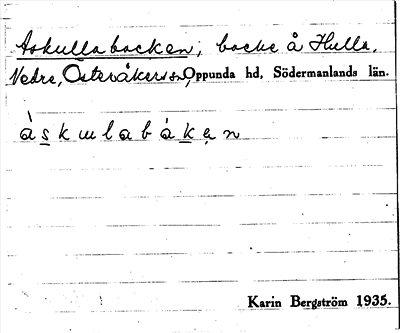 Askullabacken, backe å Hulla,
Nedre, Österåkers sn, Oppunda hd, Södermanlands län.
àskɯlabákęn
Karin Bergström 1935.